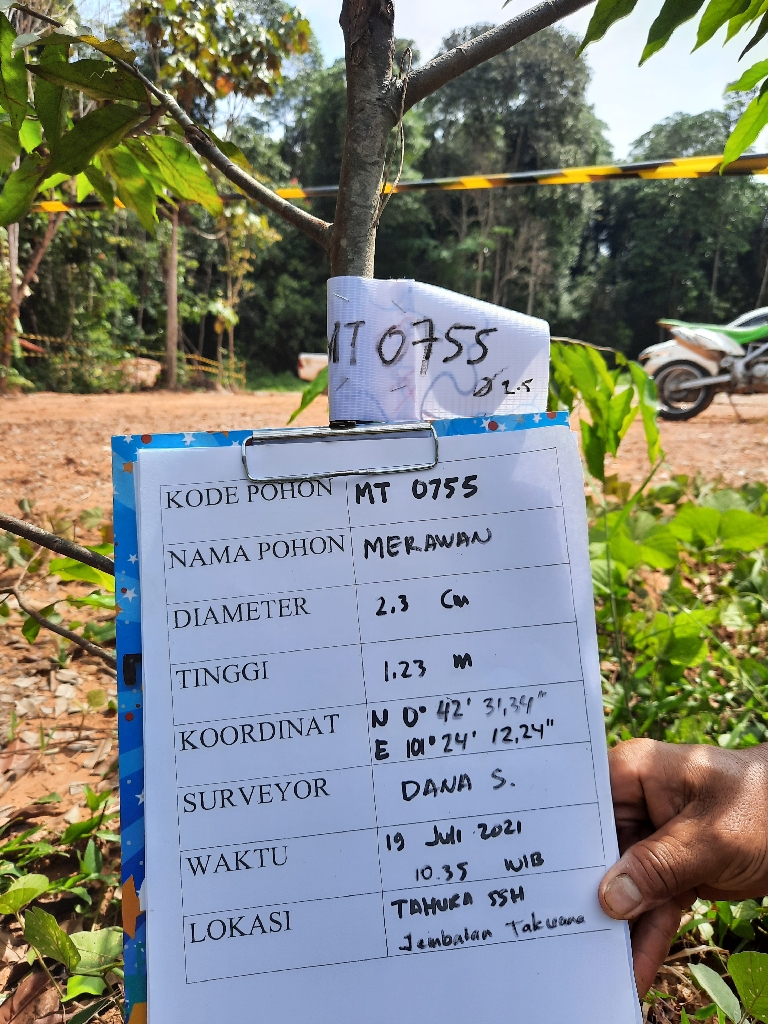 MT 0755
Ø 2.5
KODE POHON MT 0755
NAMA POHON MERAWAN
DIAMETER 2.3 Cm
TINGGI 1.23 m
KOORDINAT N 0° 42' 31,34"
E 101° 24' 12,24"
SURVEYOR DANA S.
WAKTU 19 Juli 2021
10.35 WIB
LOKASI TAHURA SSH
Jembatan Takuana